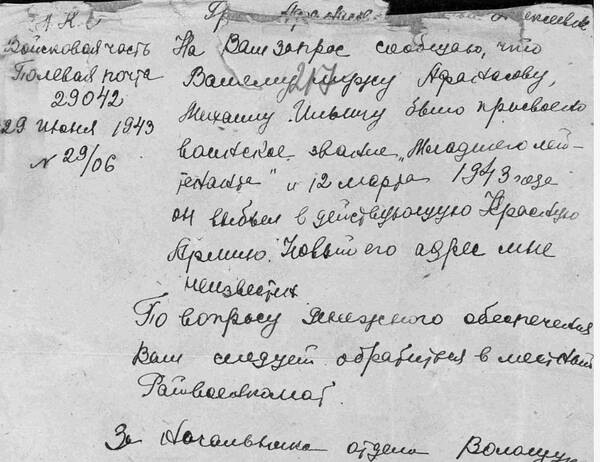 Н.К.О.
Войсковая часть
Полевая почта
29042
29 июня 1943
N 29/06
217
На Ваш запрос сообщаю, что
Вашему мужу Афанасову,
Михаилу Ильичу было присвоено
воинское звание „Младшего лей-
тенанта" и 12 марта 1943 года
он выбыл в действующую Красную
Армию. Новый его адрес мне
неизвестен
По вопросу денежного обеспечения
Вам следует обратиться в местный
Райвоенкомат.
За Начальника отдела